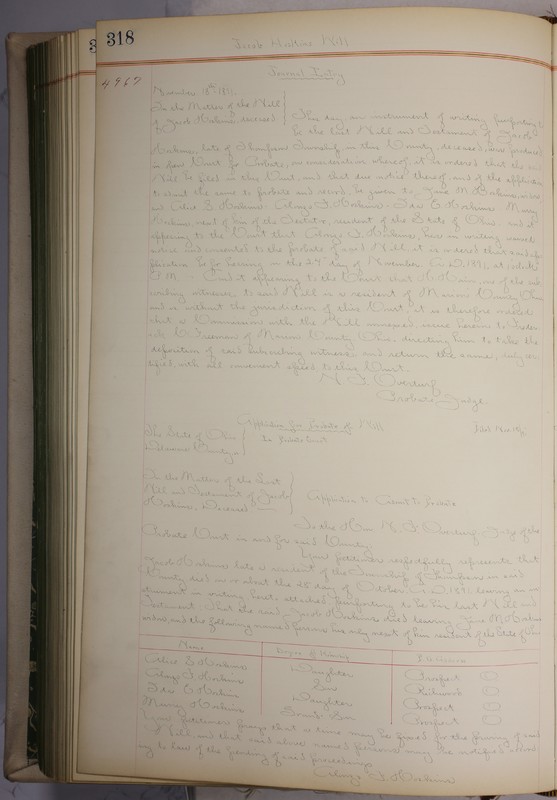 318
Jacob Hoskins Will
Journal Entry
4967
In the Matter of the Will
of Jacob Hoskins, deceased
This day an instrument of writing purporting to
be the last Will and Testament of Jacob
Hoskins, late of Thompson Township in this County, deceased, was produced
in open Court for Probate, in consideration whereof, it is ordered that the said
Will be filed in this Court, and that due notice thereof, and of the application
to admit the same to probate and record, be given to Jane M Hoskins, widow
and Alice S Hoskins George F. Hoskins
Hoskins, next of kin of the Testator, resident of the State of Ohio, and it
appearing to the Court that George F. Hoskins, has in writing waived
notice and consented to the probate of said Will, it is ordered that said ap-
plication be for hearing on the 24th day of November A.D. 1891, at o'clock
P.M. And it appearing to the Court that one of the sub-
scribing witnesses to said Will is a resident of Marion County Ohio
and is without the jurisdiction of this Court, it is therefore ordered
that a Commission with the Will annexed, issue herein to Freder-
ick C. of Marion County Ohio, directing him to take the
deposition of said subscribing witness and return the same, duly cer-
tified, with all convenient speed to this Court.
Overturf
Probate Judge
Application for Probate of Will
Filed Nov.
The State of Ohio
Delaware County
In Probate Court
In the Matter of the Last
Will and Testament of Jacob
Hoskins, Deceased
Application to Admit to Probate
To the Hon. Overturf, Judge of the
Probate Court in and for said County.
Your petitioner respectfully represents that
Jacob Hoskins late a resident of the Township of Thompson in said
County died on or about the day of October, A.D. 1891 leaving an in-
strument in writing, hereto attached purporting to be his last Will and
Testament. That the said Jacob Hoskins died leaving Jane M. Hoskins
widow, and the following named persons his only next of kin resident of the State of Ohio
Name Degree of Kinship P.O. Address
Alice S Hoskins Daughter Prospect O
George F. Hoskins Son Richwood O
Hoskins Daughter Prospect O
Hoskins Grand Son Prospect O
Your petitioner prays that a time may be fixed for the proving of said
Will, and that said above named persons may be notified accord-
ing to law of the pendency of said proceedings.
George F. Hoskins